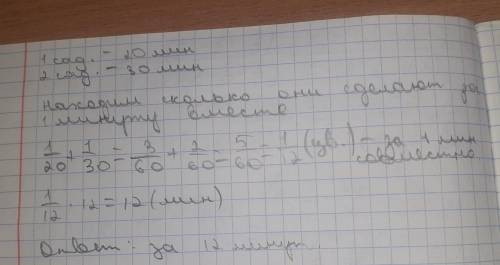 1 сад. - 20 мин
2 сад. - 30 мин
находим сколько они сделают за
1 минуту вместе
1/20 + 1/30 = 3/60 + 2/60 = 5/60 = 1/12 (цв.) - за 1 мин
совместно
1/12 · 12 = 12 (мин)
Ответ: за 12 минут.